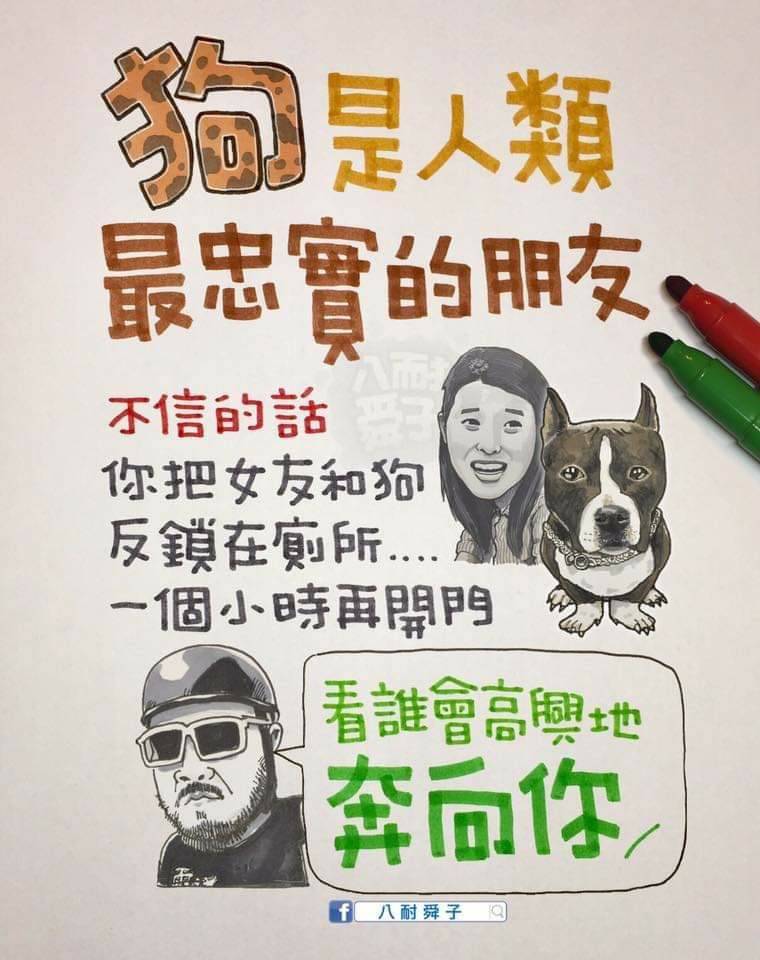 狗是人類
最忠實的朋友
八耐
舜子
不信的話
你把女友和狗
反鎖在廁所....
一個小時再開門
看誰會高興地
奔向你
f 八耐舜子